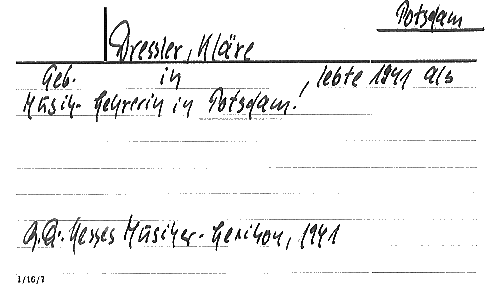 Potsdam
Dressler, Kläre
Geb. in , lebte 1941 als
Musik-Lehrerin in Potsdam.
Hesses Musiker-Lexikon, 1941
1/16/7